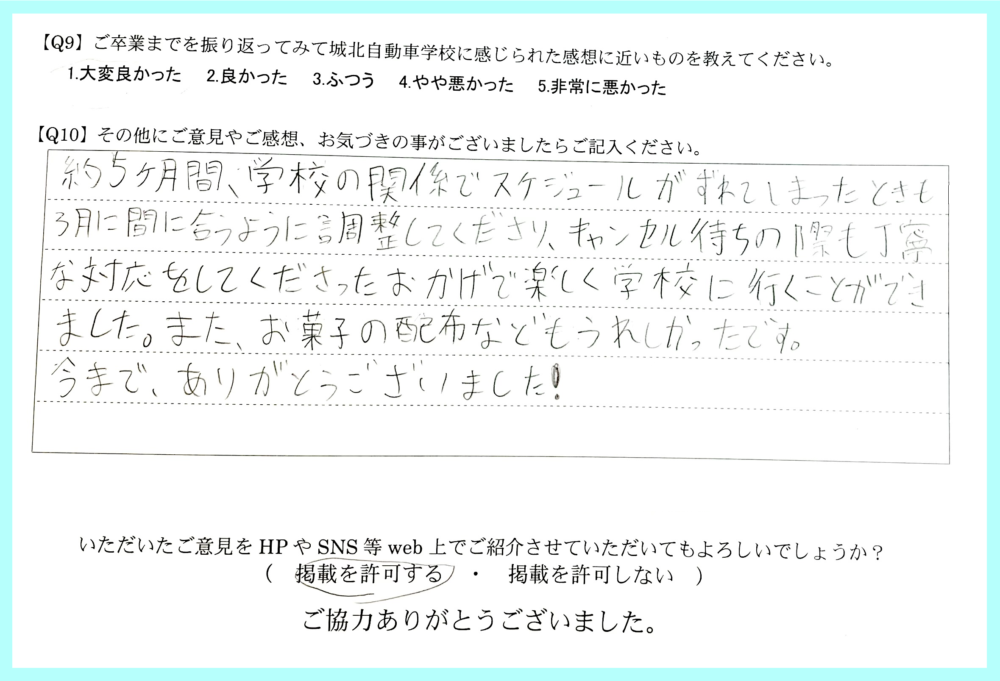 【Q9】ご卒業までを振り返ってみて城北自動車学校に感じられた感想に近いものを教えてください。
1.大変良かった 2.良かった 3.ふつう 4.やや悪かった 5.非常に悪かった
【Q10】その他にご意見やご感想、お気づきの事がございましたらご記入ください。
約5ヶ月間、学校の関係でスケジュールがずれてしまったときも
3月に間に合うように調整してくださり、キャンセル待ちの際も丁寧
な対応をしてくださったおかげで楽しく学校に行くことができ
ました。また、お菓子の配布などもうれしかったです。
今まで、ありがとうございました!
いただいたご意見をHPやSNS等web上でご紹介させていただいてもよろしいでしょうか?
( 掲載を許可する ・ 掲載を許可しない )
ご協力ありがとうございました。